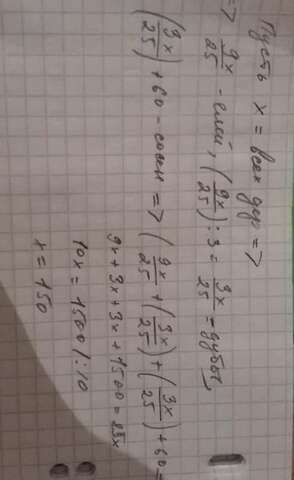 Пусть x = всех дер =>
=> 9x/25 - елей, (9x/25) : 3 = 3x/25 - дубы,
(3x/25) + 60 - сосен => (9x/25) + (3x/25) + (3x/25) + 60 =
9x + 3x + 3x + 1500 = 25x
10x = 1500 | : 10
x = 150